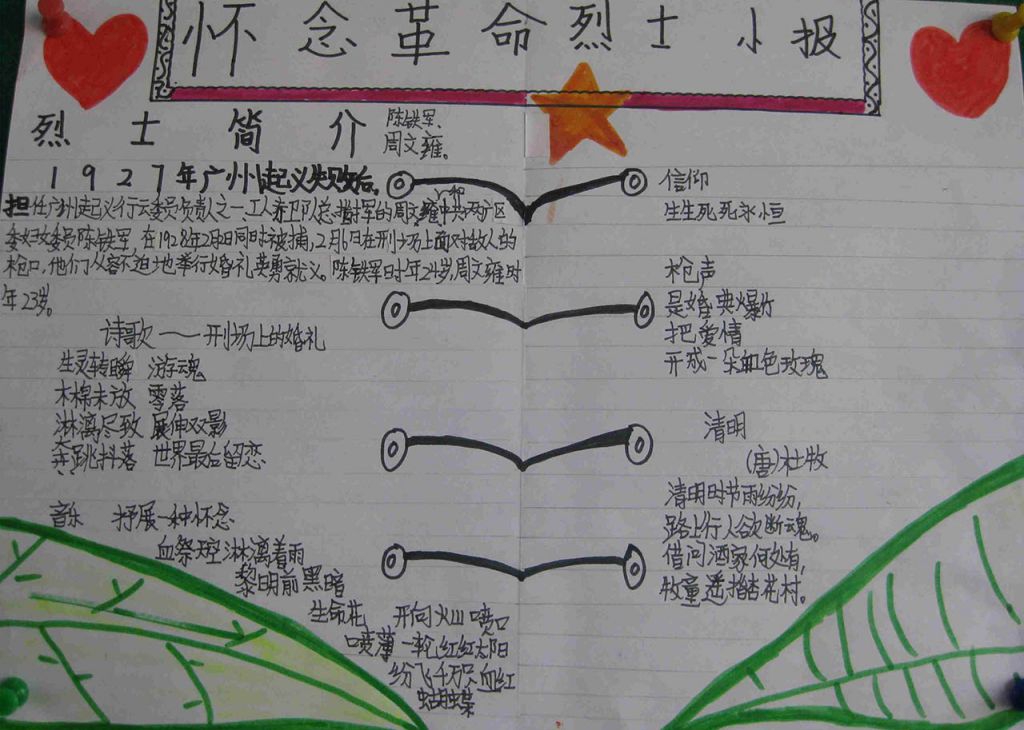 怀念革命烈士小报
烈士简介 陈铁军、
周文雍。
1927年广州起义失败后。
担任广州起义行动委员负责人之一、工人赤卫队总指挥的周文雍和中共两广区
委妇女委员陈铁军,在1928年2月2日同时被捕,2月6日在刑场上面对敌人的
枪口,他们从容不迫地举行婚礼英勇就义。陈铁军时年24岁,周文雍时
年23岁。
诗歌——刑场上的婚礼
生灵转瞬 游魂
木棉未放 零落
淋漓尽致 展伸双影
奔跳抖落 世界最后留恋
音乐 抒展一种怀念
血祭天空淋漓着雨
黎明前黑暗
生命花 开向火山喷口
喷薄一轮红红太阳
纷飞千万只血红
蝴蝶
信仰
生生死死永恒
枪声
是婚典爆竹
把爱情
开成一朵血色玫瑰
清明
(唐)杜牧
清明时节雨纷纷,
路上行人欲断魂。
借问酒家何处有,
牧童遥指杏花村。